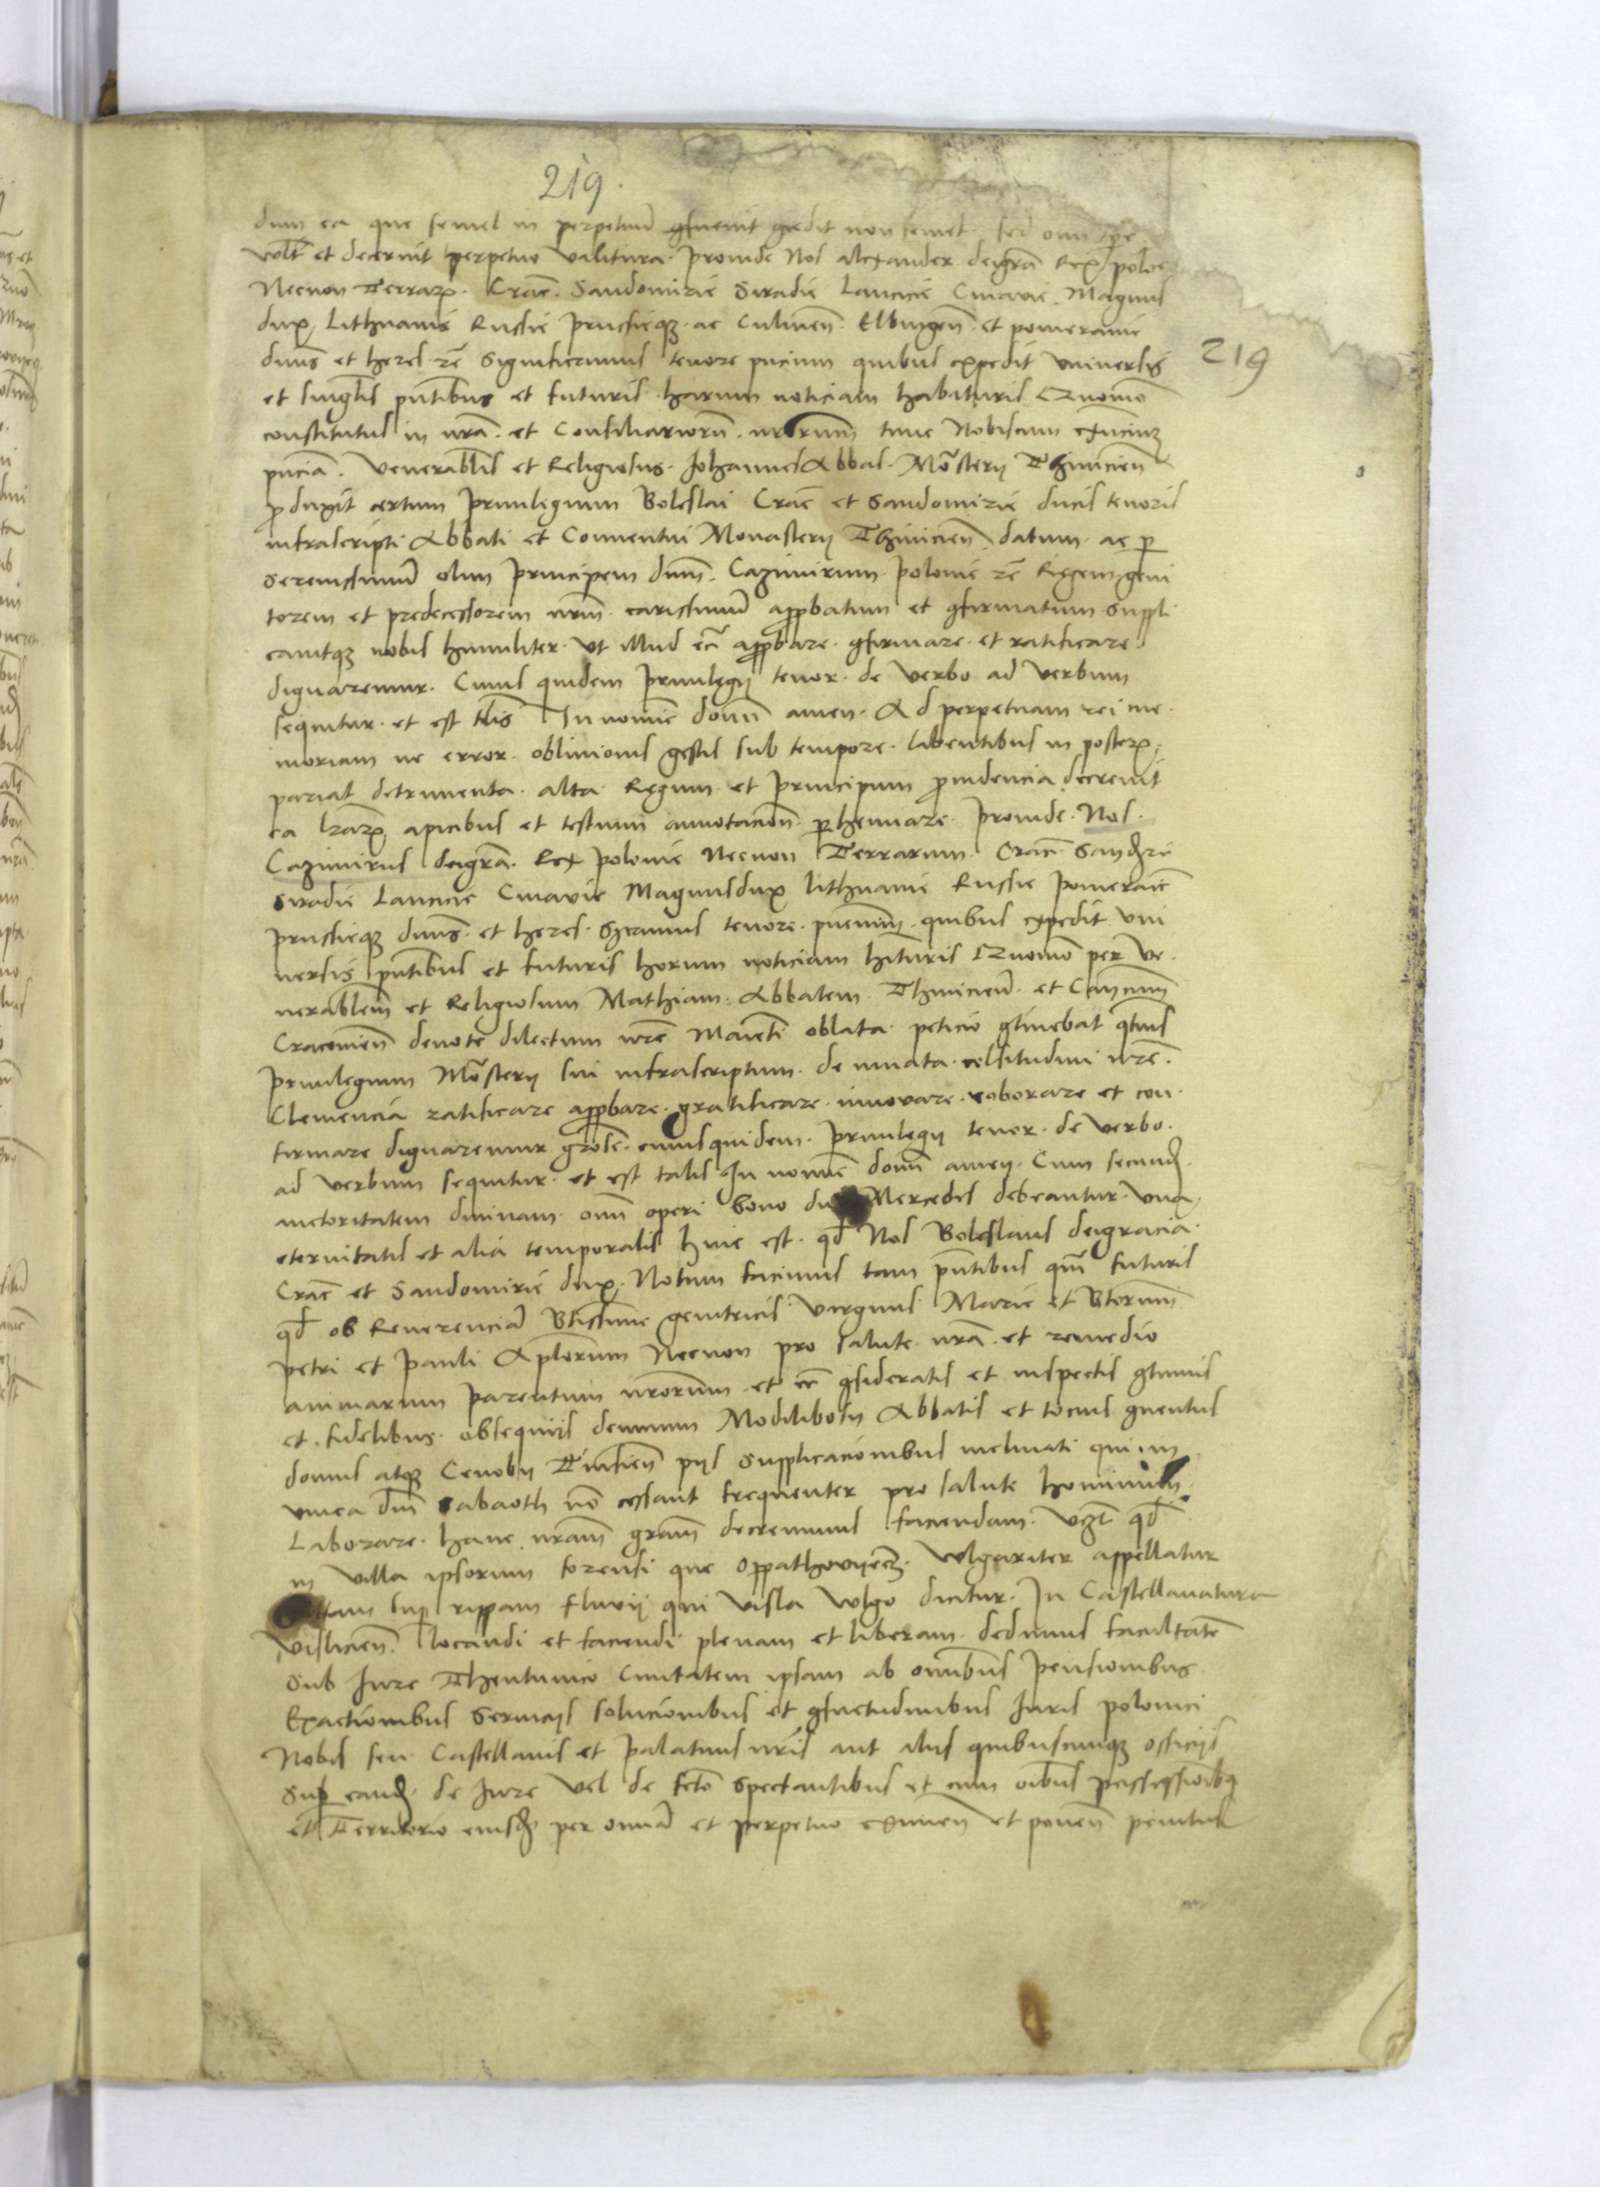 219.
dum ea que semel in perpetuu gfuerit gredit non semel sed omi tpe
volt et decernit perpetuo valitura. proinde Nos Alexander deigra Rex poloe
Necnon Terrarȝ. Crac. Sandomirie Siradie Lancicie Cuiavie Magnus
dux Lithuanie Russie prussieqȝ ac Culmen. Elbingen. et pomeranie
dnus et heres rc Significamus tenore pncium quibus expedit vniversis
219
et singlis pntibus et futuris harum noticiam habituris Quomo
constitutus in nra. et Consiliariorum. nrorum tunc Nobiscum exncium
pncia. Venerablis et Religiosus Johannes Abbas Mostery Thinicien
produxit certum Privilegium Boleslai Crac et Sandomirie ducis tenoris
infrascripti Abbati et Conventui Monastery Thinicien. datum ac per
Serenissimu olim Principem dnm. Cazimirum polonie rc Regem geni
torem et predecessorem nrm carissimu approbatum et gfirmatum Suppli
cauitqȝ nobis humiliter. vt illud eci approbare gfirmare et ratificare
dignaremur. Cuius quidem Privilegy tenor. de verbo ad verbum
sequitur. et est tlis In nomie domi amen. Ad perpetuam rei me
moriam ne error oblivionis gestis sub tempore labentibus in posterȝ
pariat detrimenta. alta Regum et Principum providencia decrevit
ea lrarȝ apicibus et testium annotacion perhennare proinde Nos.
Cazimirus deigra. Rex polonie Necnon Terrarum Crac Sandrie
Siradie Lancicie Cuiavie Magnusdux lithuanie Russie pomeraie
prussieqȝ dnus et heres Sigmus tenore pncium quibus expedit vni
versis pntibus et futuris horum noticiam hituris Quomo per ve
nerablem et Religiosum Mathiam Abbatem Thinicien et Cancrium
Cracouien devote dilectum nre Maiesti oblata peticio gtinebat qtnus
Privilegium Mostery sui infrascriptum de innata celsitudini nre
Clemencia ratificare approbare gratificare innovare roborare et con
firmare dignaremur grose cuiusquidem. privilegy tenor de verbo.
ad verbum sequitur et est talis In nomie domi amen. Cum secund
auctoritatem divinam omi operi bono due Mercedes debeantur. vna
eternitatis et alia temporalis hinc est. qd Nos Boleslaus deigracia
Crac et Sandomirie dux. Notum facimus tam pntibus qm futuris
qd ob Reverencia Btissime genitricis virginis Marie et Btorum
petri et pauli Aplorum Necnon pro salute nra et remedio
animarum parentum nrorum et ec gsideratis et inspectis gtinuis
et fidelibus obsequiis demum Modilibosy Abbatis et tocius gventus
domus atqȝ Cenoby Tinscien piis Supplicacionibus inclinati qui in
vinea dni Sabaoth no cessant frequenter pro salute hominum
Laborare. hanc nram gram decrevimus faciendam. vgt qd
in villa ipsorum forensi que Oppathovyecz. wlgariter appellatur
sup rippam fluvii qui visla wlgo dicitur. In Castellanatura
visliciens. locandi et faciendi plenam et liberam dedimus facultate
Sub Iure Theutunico Civitatem ipsam ab omibus pensionibus
Exactionibus Serviciis solucionibus et gsuetudinibus Iuris polonici
Nobis seu Castellanis et palatinis nris aut aliis quibuscunqȝ officiis
Sup eand de Iure vel de fcto Spectantibus et cum oibus possessioibqȝ
et Territorio eiusd per omnia et perpetuo eximen et ponen penitus